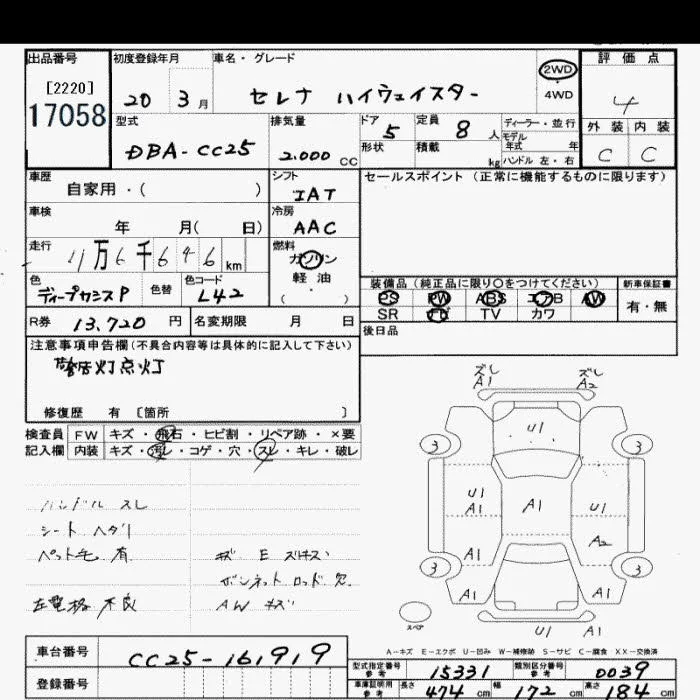 出品番号
[2220]
17058
初度登録年月
20 3月
車名・グレード
セレナ ハイウェイスター
2WD
4WD
評価点
4
外装 内装
C C
型式
DBA-CC25
排気量
2.000 CC
ドア 5
形状
定員 8 人
積載 kg
ディーラー・並行
モデル
年式 年
ハンドル 左・右
車歴
自家用・( )
シフト
IAT
セールスポイント (正常に機能するものに限ります)
車検
年 月( 日)
冷房
AAC
走行
11万6千646km
燃料
ガソリン
軽油
( ・ )
色
ディープカシスP
色替
色コード
L42
装備品 (純正品に限り○をつけてください)
新車保証書
PS PW ABS エアB AW
有・無
SR ナビ TV カワ
R券 13,720 円
名変期限 月 日
後日品
注意事項申告欄(不具合内容等は具体的に記入して下さい)
警告灯点灯
修復歴 有 〔箇所 〕
検査員
記入欄
FW キズ・飛石・ヒビ割・リペア跡・×要
内装 キズ・汚レ・コゲ・穴・スレ・キレ・破レ
ハンドル スレ
シート ヘタリ
ペット毛 有
左電格 不良
キズ E
ボンネット ロッド 欠
AW キズ
ズレ
A1
ズレ
A2
U1
3 3
U1
A1
A1
U1
A1
A2
3 3
A1 A1
スペア
U1 A1
A-キズ E-エクボ U-凹み W-補修跡 S-サビ C-腐食 XX-交換済
車台番号
CC25-161919
登録番号
型式指定番号
参考
15331
類別区分番号
参考
0039
車庫証明用
参考
長さ 474 cm
幅 172 cm
高さ 184 cm